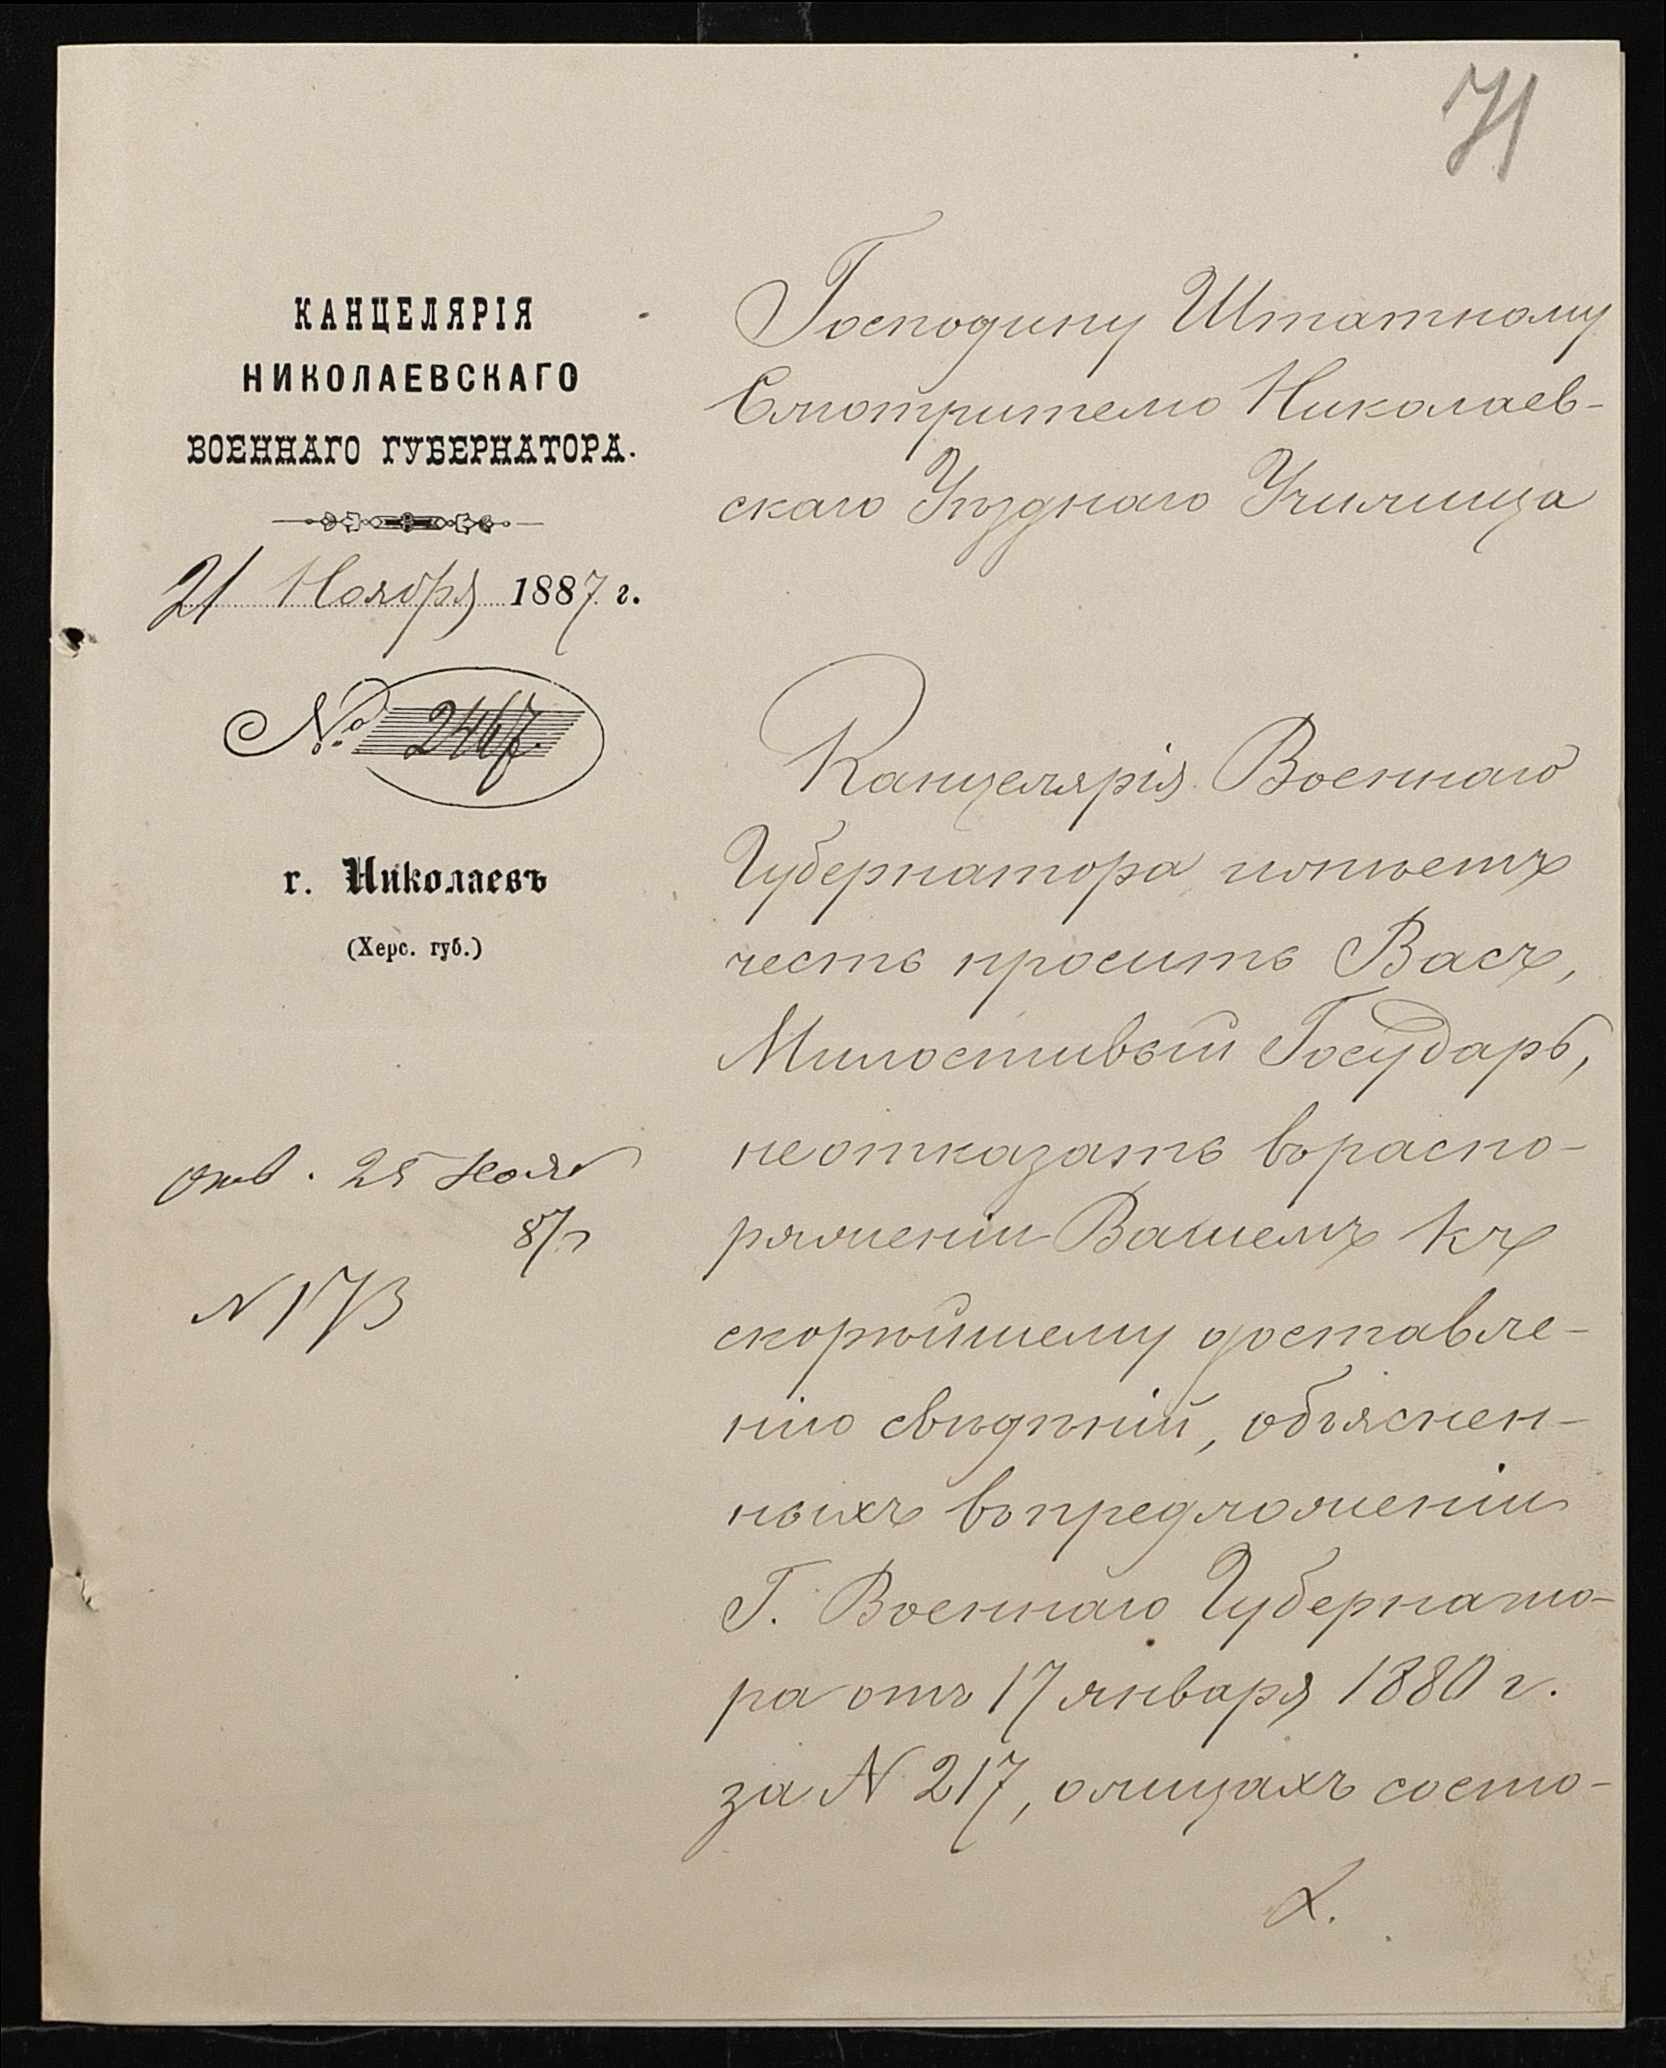 71
КАНЦЕЛЯРІЯ
НИКОЛАЕВСКАГО
ВОЕННАГО ГУБЕРНАТОРА.
21 Ноября 1887 г.
№ 2467.
г. Николаевъ
(Херс. губ.)
отв. 25 Нояб
87 г
N 173
Господину Штатному
Смотрителю Николаев-
скаго Уѣзднаго Училища
Канцелярія Военнаго
Губернатора имѣетъ
честь просить Васъ,
Милостивый Государь,
не отказать въ распо-
ряженіи Вашемъ къ
скорѣйшему доставле-
нію свѣдѣній, объяснен-
ныхъ въ предложеніи
Г. Военнаго Губернато-
ра отъ 17 января 1880 г.
за N 217, о лицахъ состо-